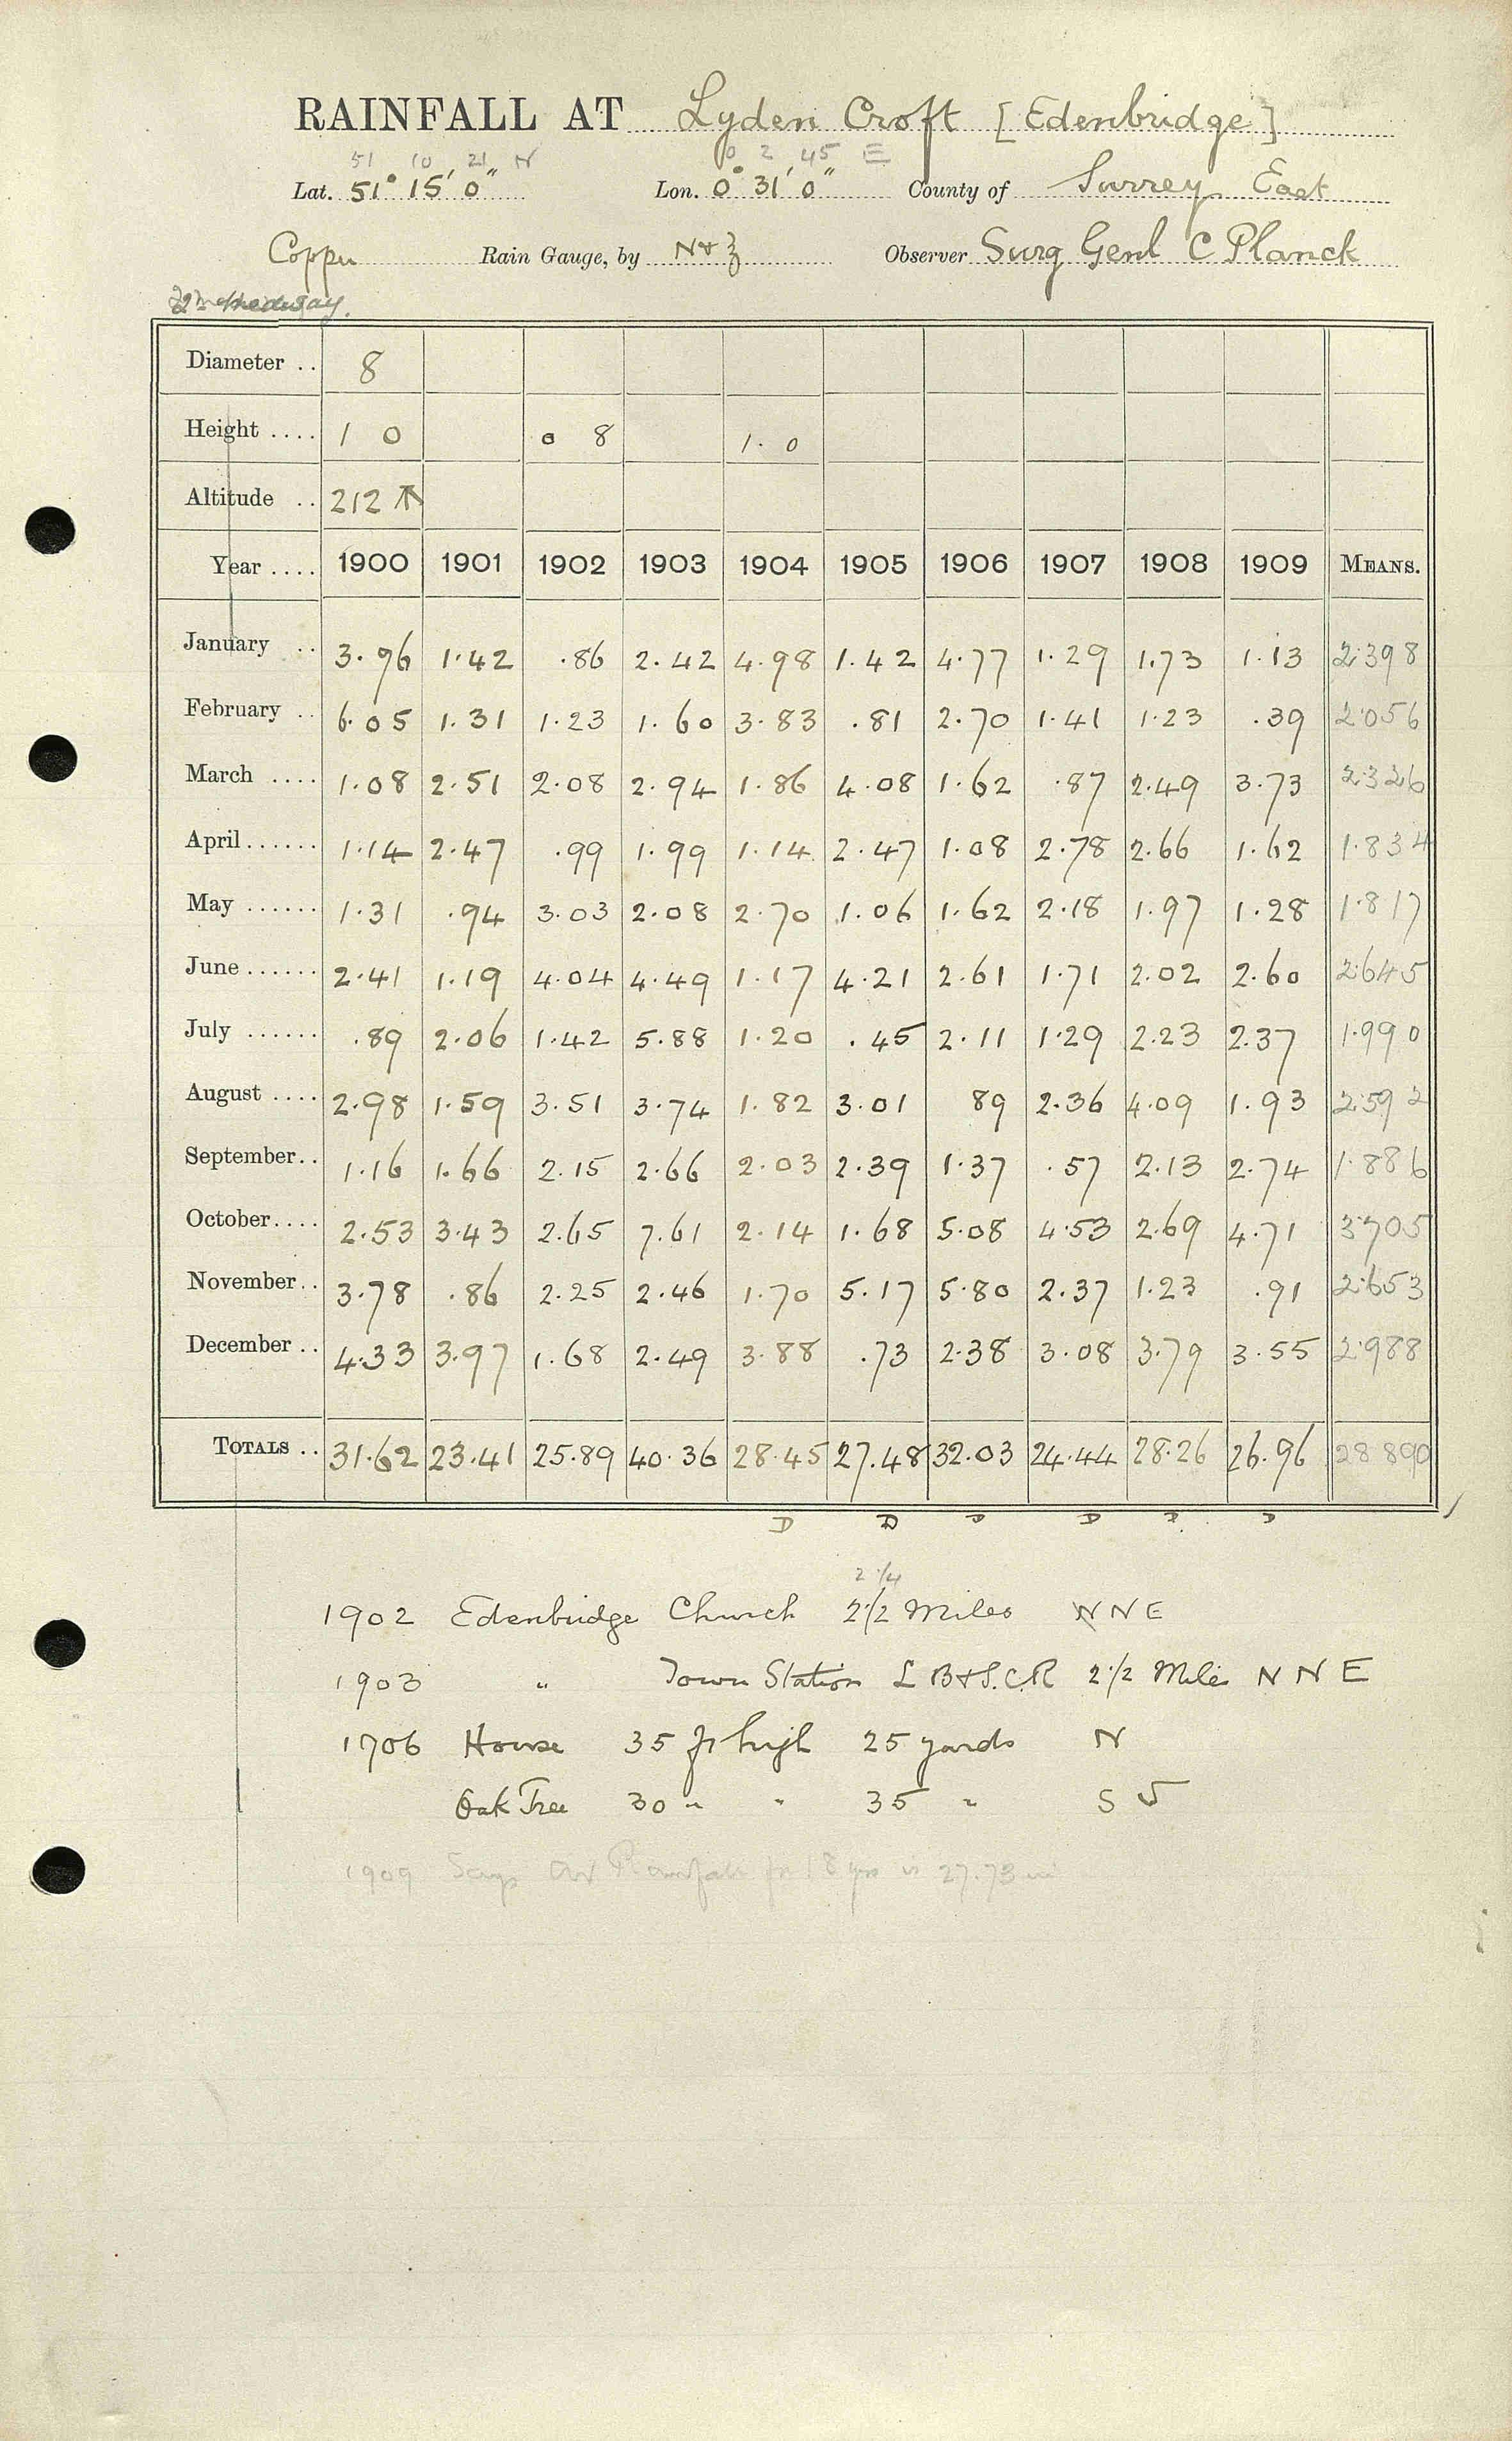 RAINFALL AT Lyden Croft [Edenbridge]
51 10 21 N 0 2 45 E
Lat. 51° 15' 0" Lon. 0° 31' 0" County of Surrey East
Copper Rain Gauge, by N & Z Observer Surg Genl C Planck
Diameter .. 8
Height .... 1 0 0 8 1.0
Altitude .. 212
Year .... 1900 1901 1902 1903 1904 1905 1906 1907 1908 1909 MEANS.
January .. 3.96 1.42 .86 2.42 4.98 1.42 4.77 1.29 1.73 1.13 2.398
February .. 6.05 1.31 1.23 1.60 3.83 .81 2.70 1.41 1.23 .39 2.056
March .... 1.08 2.51 2.08 2.94 1.86 4.08 1.62 .87 2.49 3.73 2.326
April ...... 1.14 2.47 .99 1.99 1.14 2.47 1.08 2.78 2.66 1.62 1.834
May ...... 1.31 .94 3.03 2.08 2.70 1.06 1.62 2.18 1.97 1.28 1.817
June ...... 2.41 1.19 4.04 4.49 1.17 4.21 2.61 1.71 2.02 2.60 2.645
July ...... .89 2.06 1.42 5.88 1.20 .45 2.11 1.29 2.23 2.37 1.990
August .... 2.98 1.59 3.51 3.74 1.82 3.01 89 2.36 4.09 1.93 2.592
September.. 1.16 1.66 2.15 2.66 2.03 2.39 1.37 .57 2.13 2.74 1.886
October.... 2.53 3.43 2.65 7.61 2.14 1.68 5.08 4.53 2.69 4.71 3.705
November.. 3.78 .86 2.25 2.46 1.70 5.17 5.80 2.37 1.23 .91 2.653
December .. 4.33 3.97 1.68 2.49 3.88 .73 2.38 3.08 3.79 3.55 2.988
TOTALS .. 31.62 23.41 25.89 40.36 28.45 27.48 32.03 24.44 28.26 26.96 28.890
D D D D D D
2 1/4
1902 Edenbridge Church 2 1/2 Miles N N E
1903 " Town Station L B & S.C.R 2 1/2 Miles N N E
1906 House 35 ft high 25 yards N
Oak Tree 30 " " 35 " S W
1909 Says Av Rainfall for 18 yrs is 27.73 in